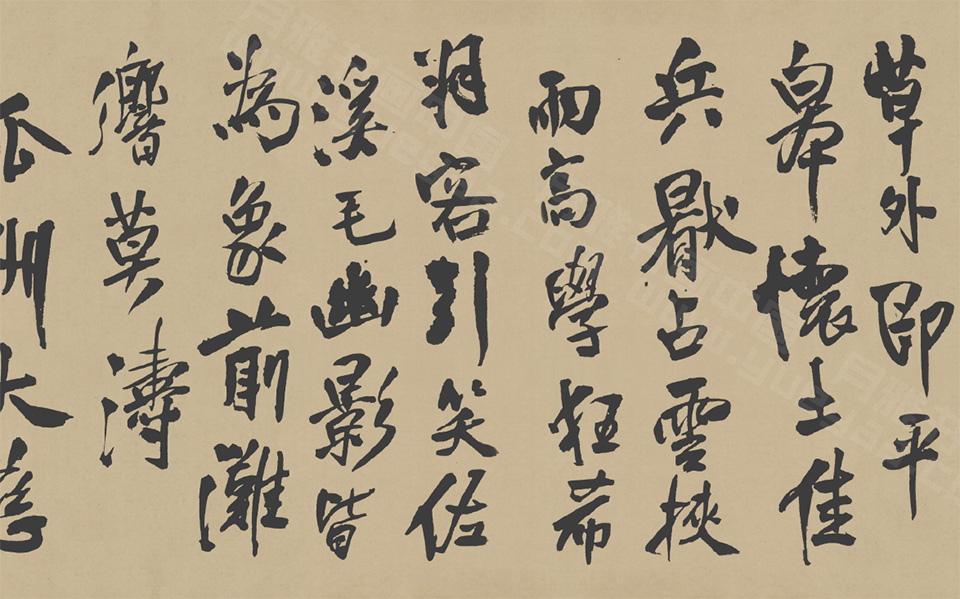 草外即平
皋懷土佳
兵厭占雲挾
雨高學狂希
客引笑佐
溪毛幽影皆
為象前灘
響莫濤
瓜洲大